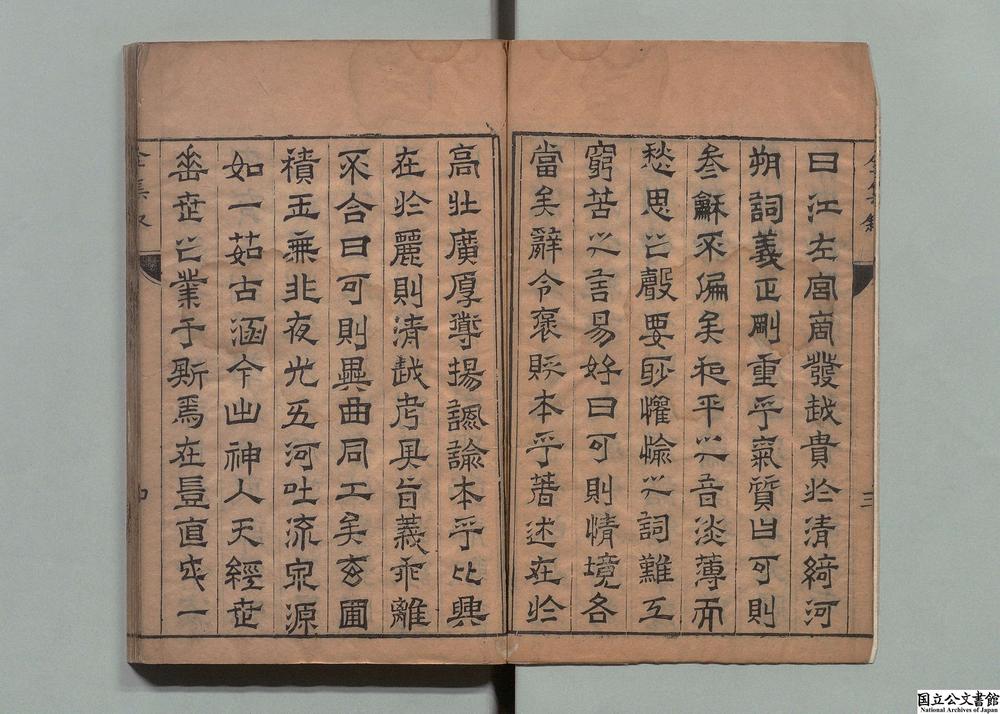 曰江左宮商發越貴於清綺河
朔詞義正剛重乎氣質曰可則
參龢不偏矣和平之音淡薄而
愁思之聲要眇懽愉之詞難工
窮苦之言易好曰可則情境各
當矣辭令褒貶本乎著述在於
高壯廣厚導揚諷諭本乎比興
在於麗則清越考其旨義乖離
不合曰可則異曲同工矣玄圃
積玉無非夜光五河吐流泉源
如一茹古涵今出神人天經世
垂世之業于斯焉在豈直成一
國立公文書館
National Archives of Japan